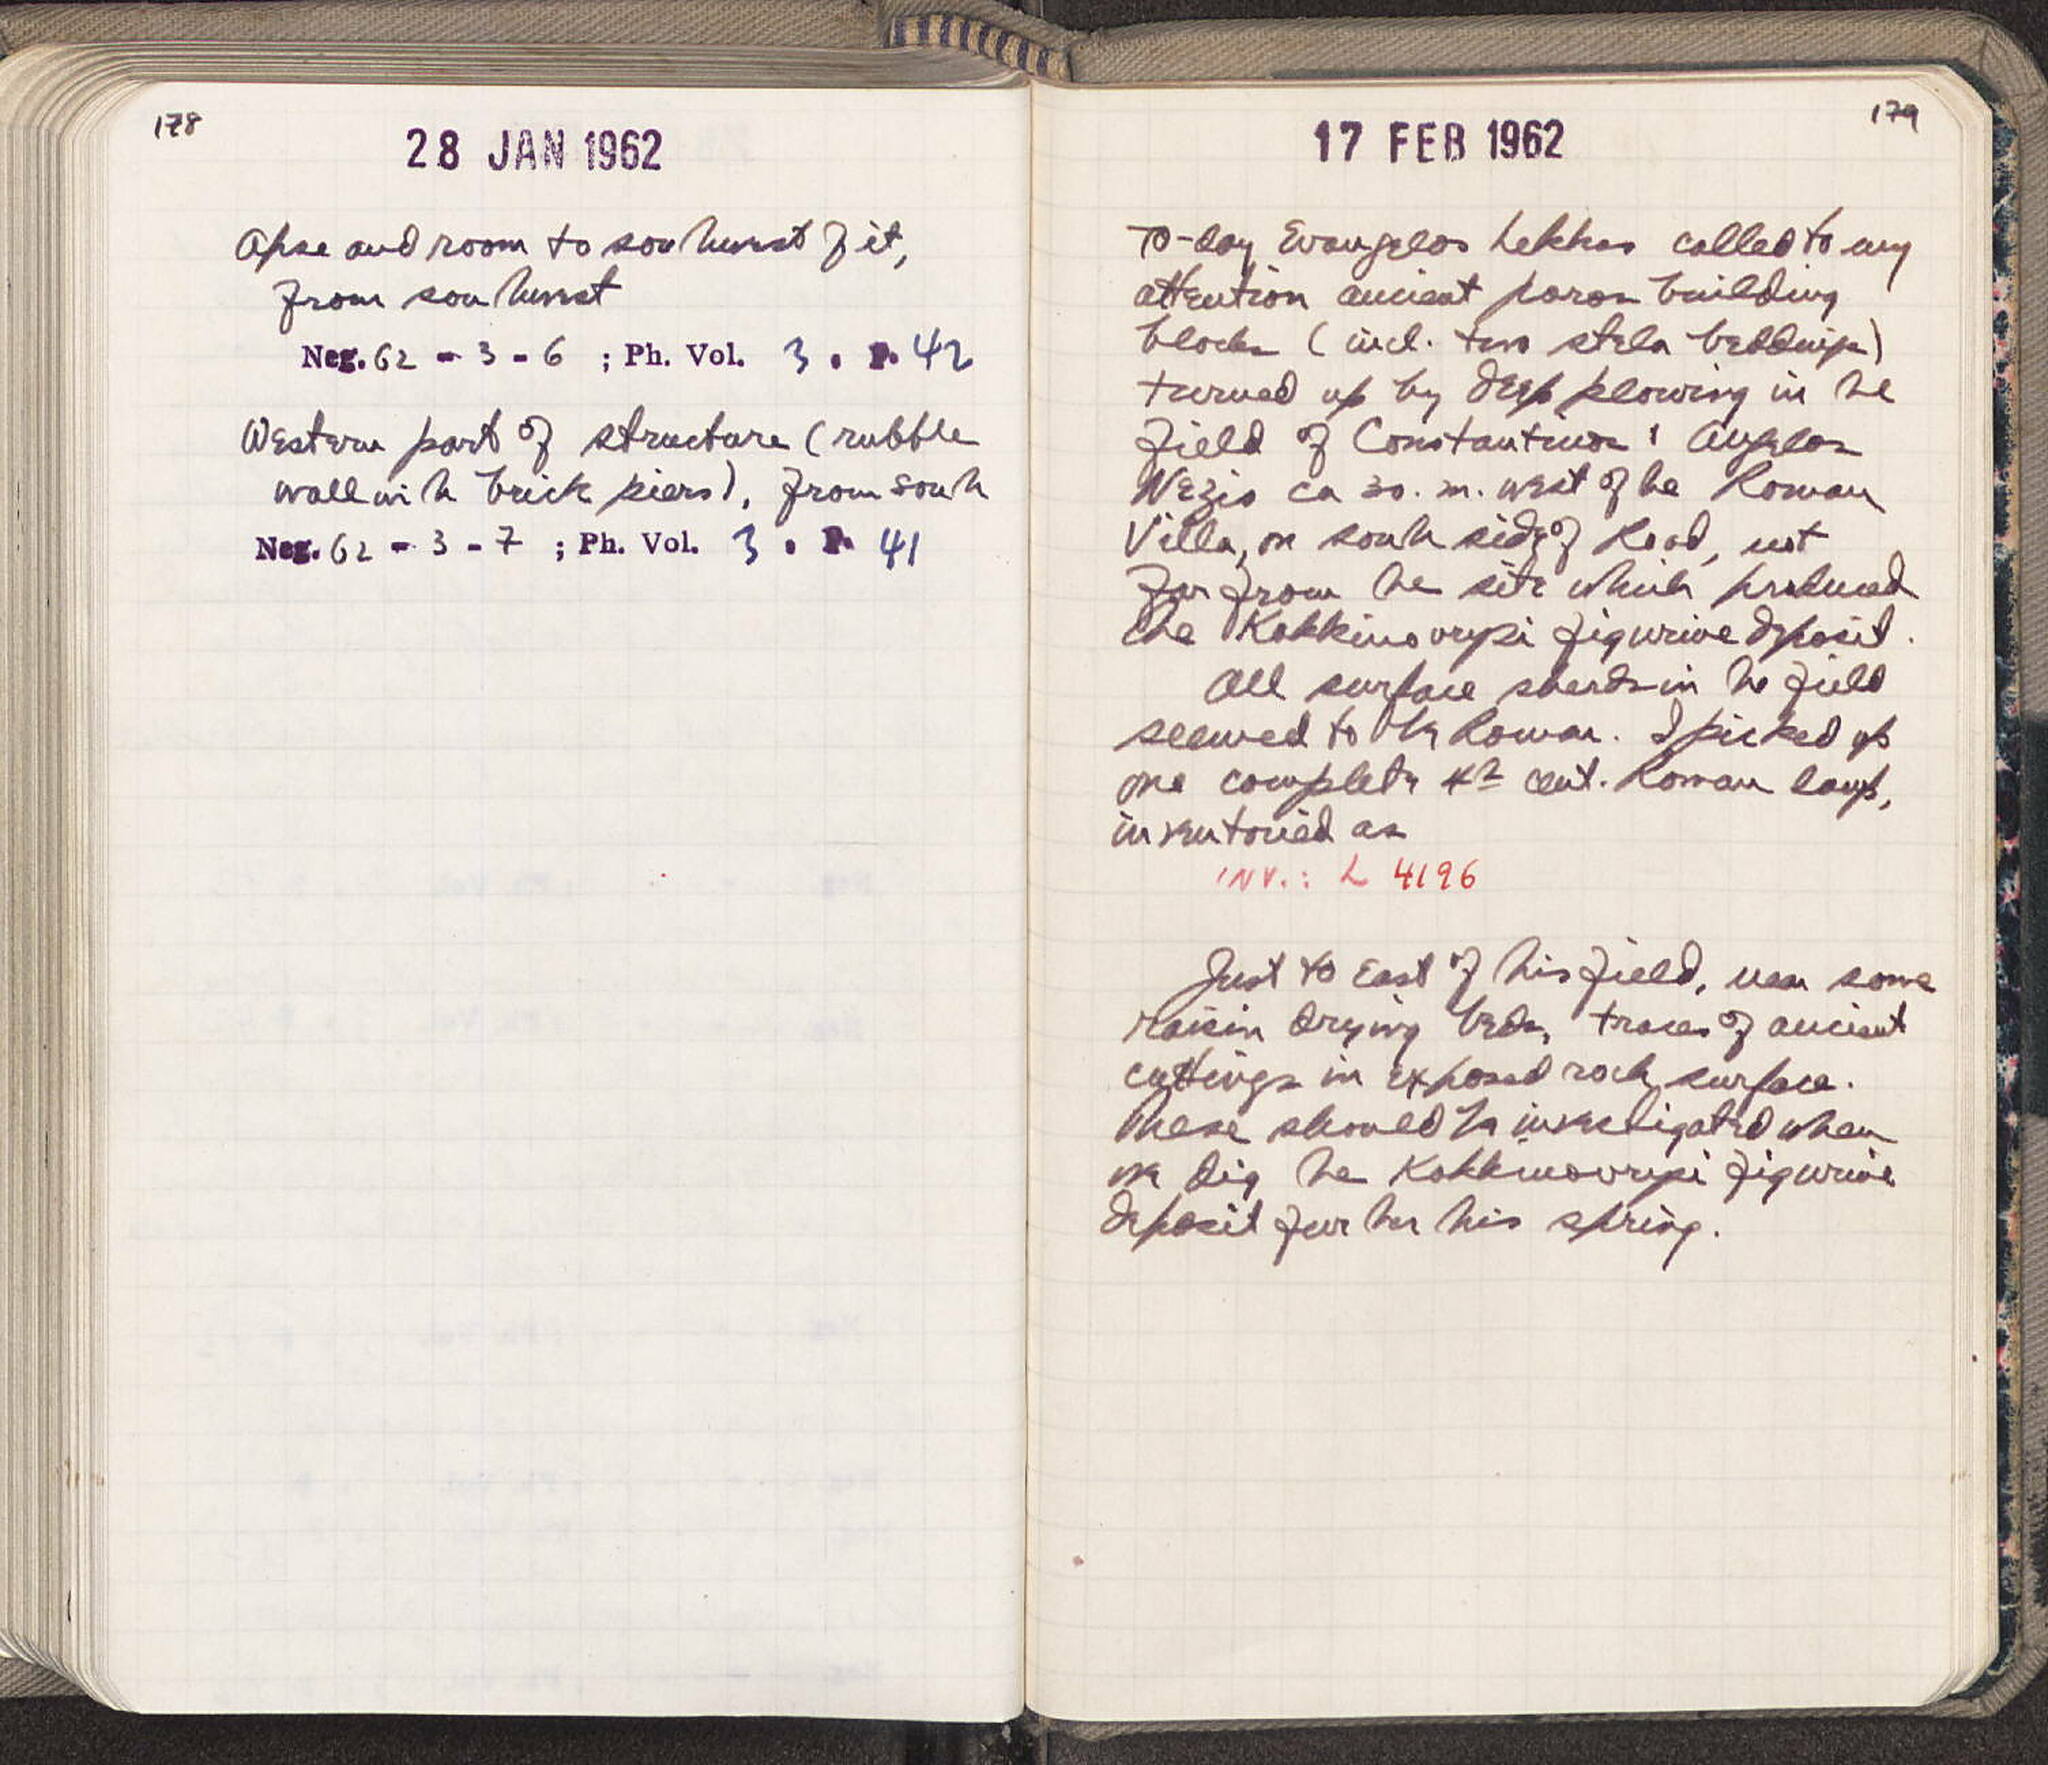 178
28 JAN 1962
Apse and room to southwest of it,
from southwest
Neg. 62 - 3 - 6 ; Ph. Vol. 3 . P. 42
Western part of structure (rubble
wall with brick piers), from south
Neg. 62 - 3 - 7 ; Ph. Vol. 3 . P. 41
179
17 FEB 1962
To-day Evangelos Lekkas called to my
attention ancient poros building
blocks (incl. two stela beddings)
turned up by deep plowing in the
field of Constantinos Angelos
ca 30. m. west of the Roman
Villa, on south side of Road, not
far from the site which produced
the Kokkinovrysi figurine deposit.
All surface sherds in the field
seemed to be Roman. I picked up
one complete 4th cent. Roman lamp,
inventoried as
INV.: L 4196
Just to East of this field, near some
raisin drying beds, traces of ancient
cuttings in exposed rock surface.
These should be investigated when
we dig the Kokkinovrysi figurine
deposit further this spring.